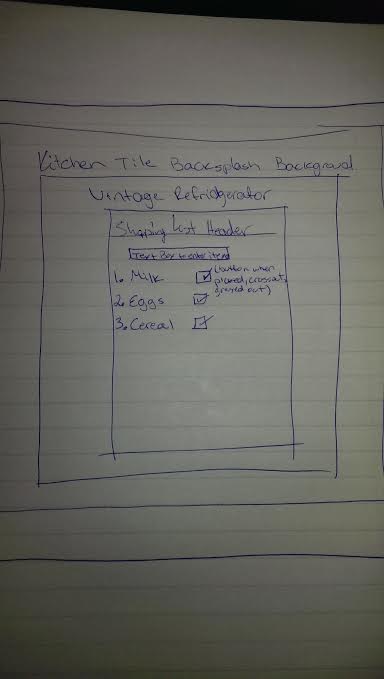 Kitchen Tile Backsplash Background
Vintage Refridgerator
Shopping List Header
Text Box to enter item
1. Milk
(button when
pressed, crosses out,
greyed out)
2. Eggs
3. Cereal